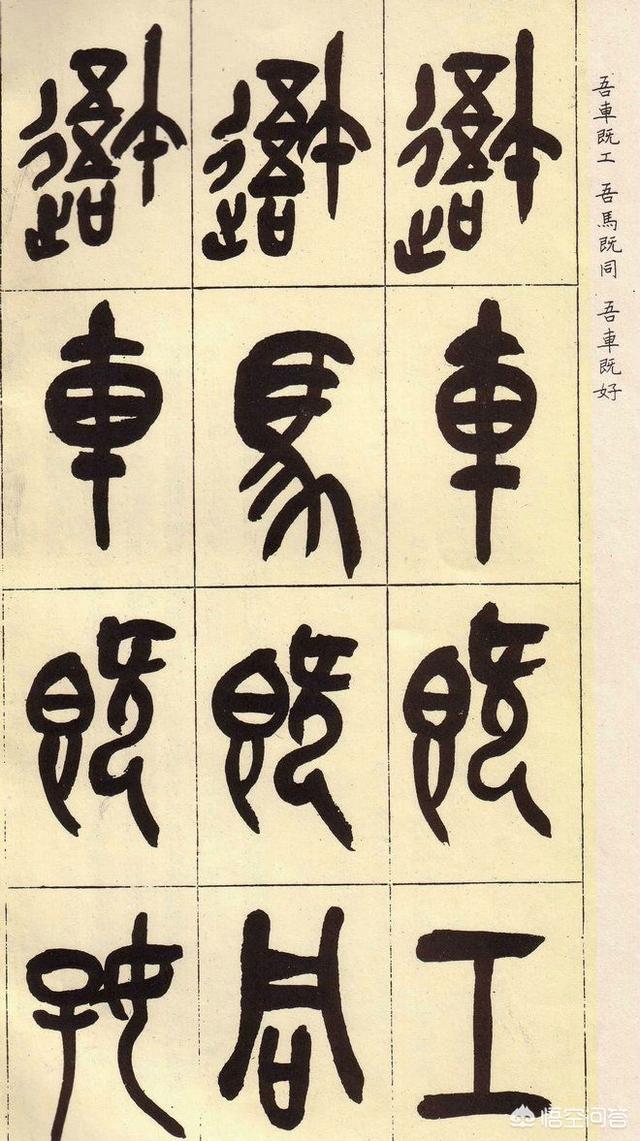 吾車既工 吾馬既同 吾車既好
吾車既工
吾馬既同
吾車既好
悟空问答